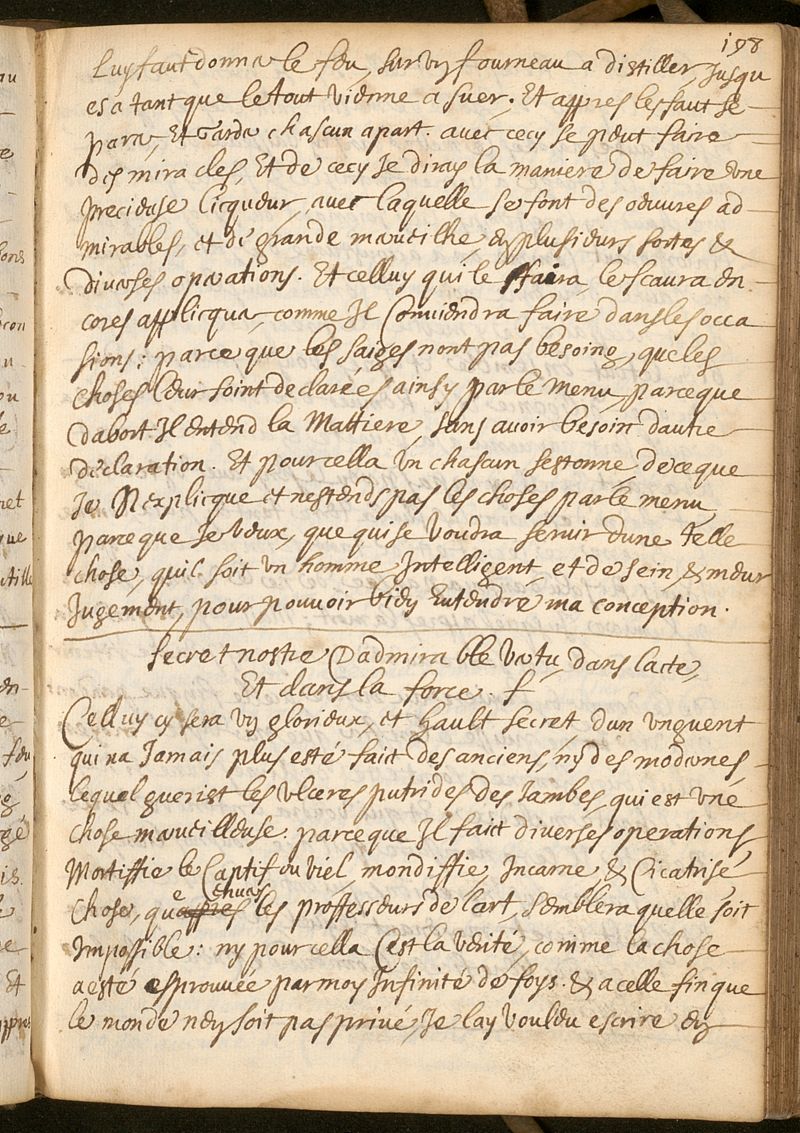 198
Luy faut donner le feu, sur vn fourneau a distiller, Jusqu
es a tant que le tout vienne a suer. Et appres les faut se-
parer, Et Garder chascun apart. avec cecy se peut faire
des miracles, Et de cecy Je diray la maniere de faire une
precieuse licqueur, avec laquelle se font des œuvres ad-
mirables, et de grande merveilhe en plusieurs sortes &
diverses operations. Et celluy qui le ffaira, le scaura en-
cores applicquer, comme Il Conviendra faire dans les occa
sions: parce que les saiges nont pas besoing, que les
choses leur soint declarées ainsy par le menu, parceque
dabort Il entend la Mattiere, sans avoir besoin dautre
declaration. Et pour cella Un chascun sestonne, de ce que
Je Nexplicque et nestends pas les choses par le menu,
parce que Je veux, que qui se voudra servir dune telle
chose, quil soit vn homme Intelligent, et de sein, & meur
Jugement, pour pouvoir bien Entendre ma conception.
Secret nostre Dadmirable vertu, dans lacte,
Et dans la force.
Celluy cy sera vn glorieux, et hault secret, dun vnguent
qui na Jamais plus esté faict des anciens, ny des modernes-
lequel guerist les vlceres putrides des Jambes, qui est une
chose merveilleuse: parce que Il faict diverses operations,
Mortiffie le Captif ou viel, mondiffie, Incarne & Cicatrise
Chose, que appres envers les proffesseurs de lart, semblera quelle soit
Impossible: ny pour cella C'est la verité, comme la chose
a esté esprouvée par moy Infinité de foys. & a celle fin que
le monde ney soit pas privé, Je lay vouleu escrire en